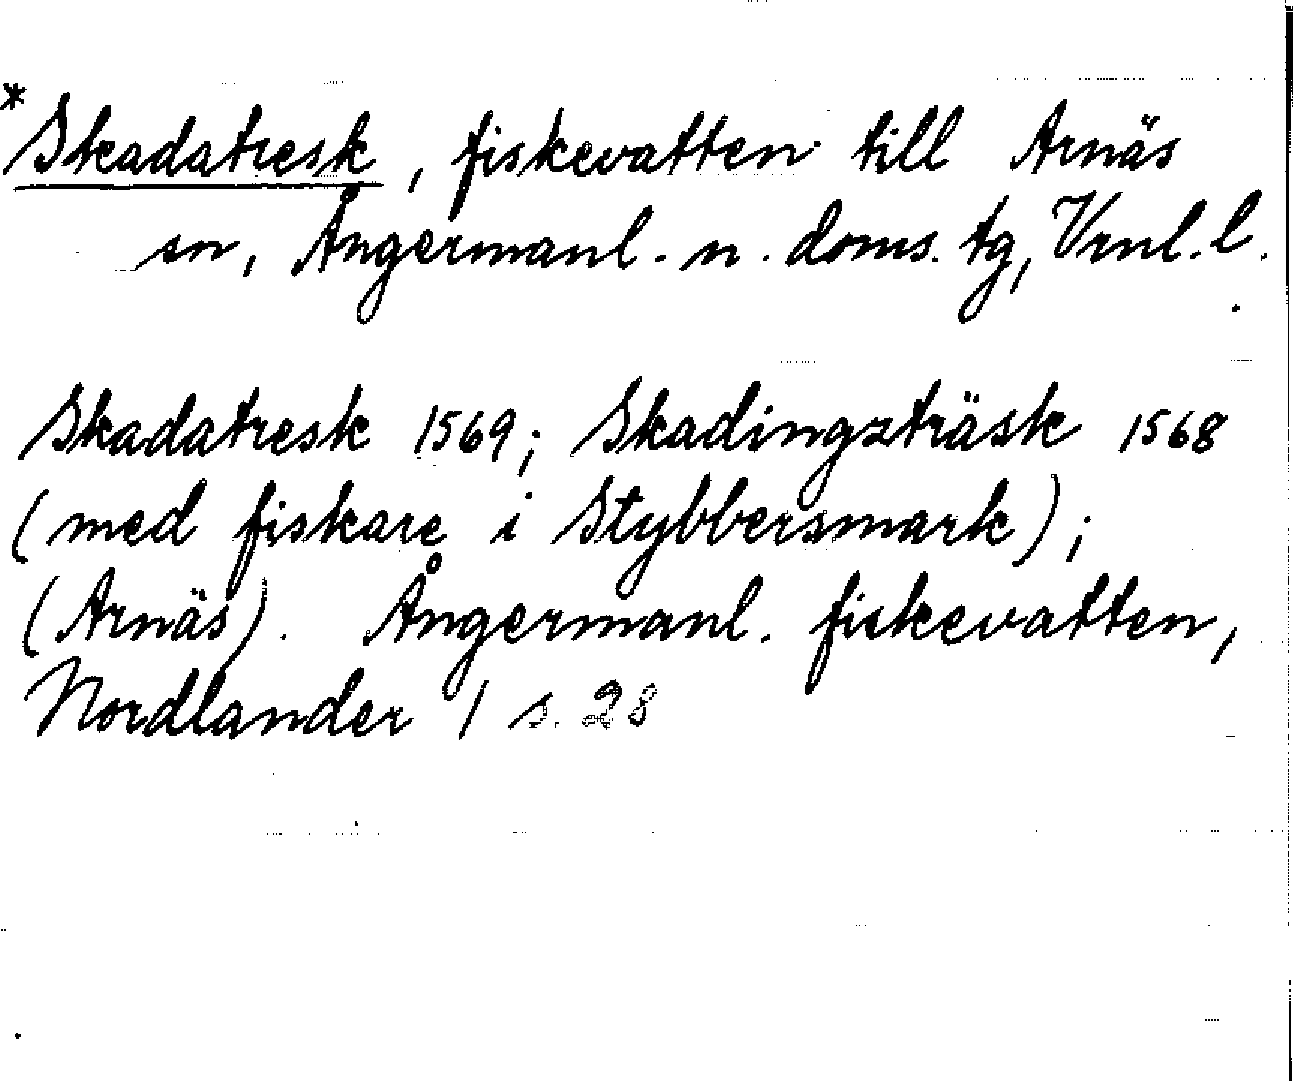 *Skadatresk, fiskevatten till Arnäs
sn, Ångermanl. n. doms. tg, Vrnl. l.
Skadatresk 1569; Skadingzträsk 1568
(med fiskare i Stybbersmark);
(Arnäs). Ångermanl. fiskevatten,
Nordlander 1 s. 28